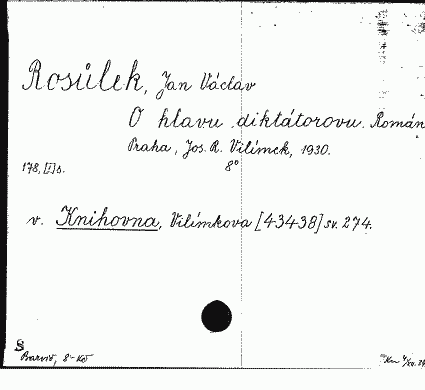 Rosůlek, Jan Václav
O hlavu diktátorovu. Román
Praha, Jos. R. Vilímek, 1930.
178, [I] s. 8°
v. Knihovna, Vilímkova [43438] sv. 274.
S
8-Kč